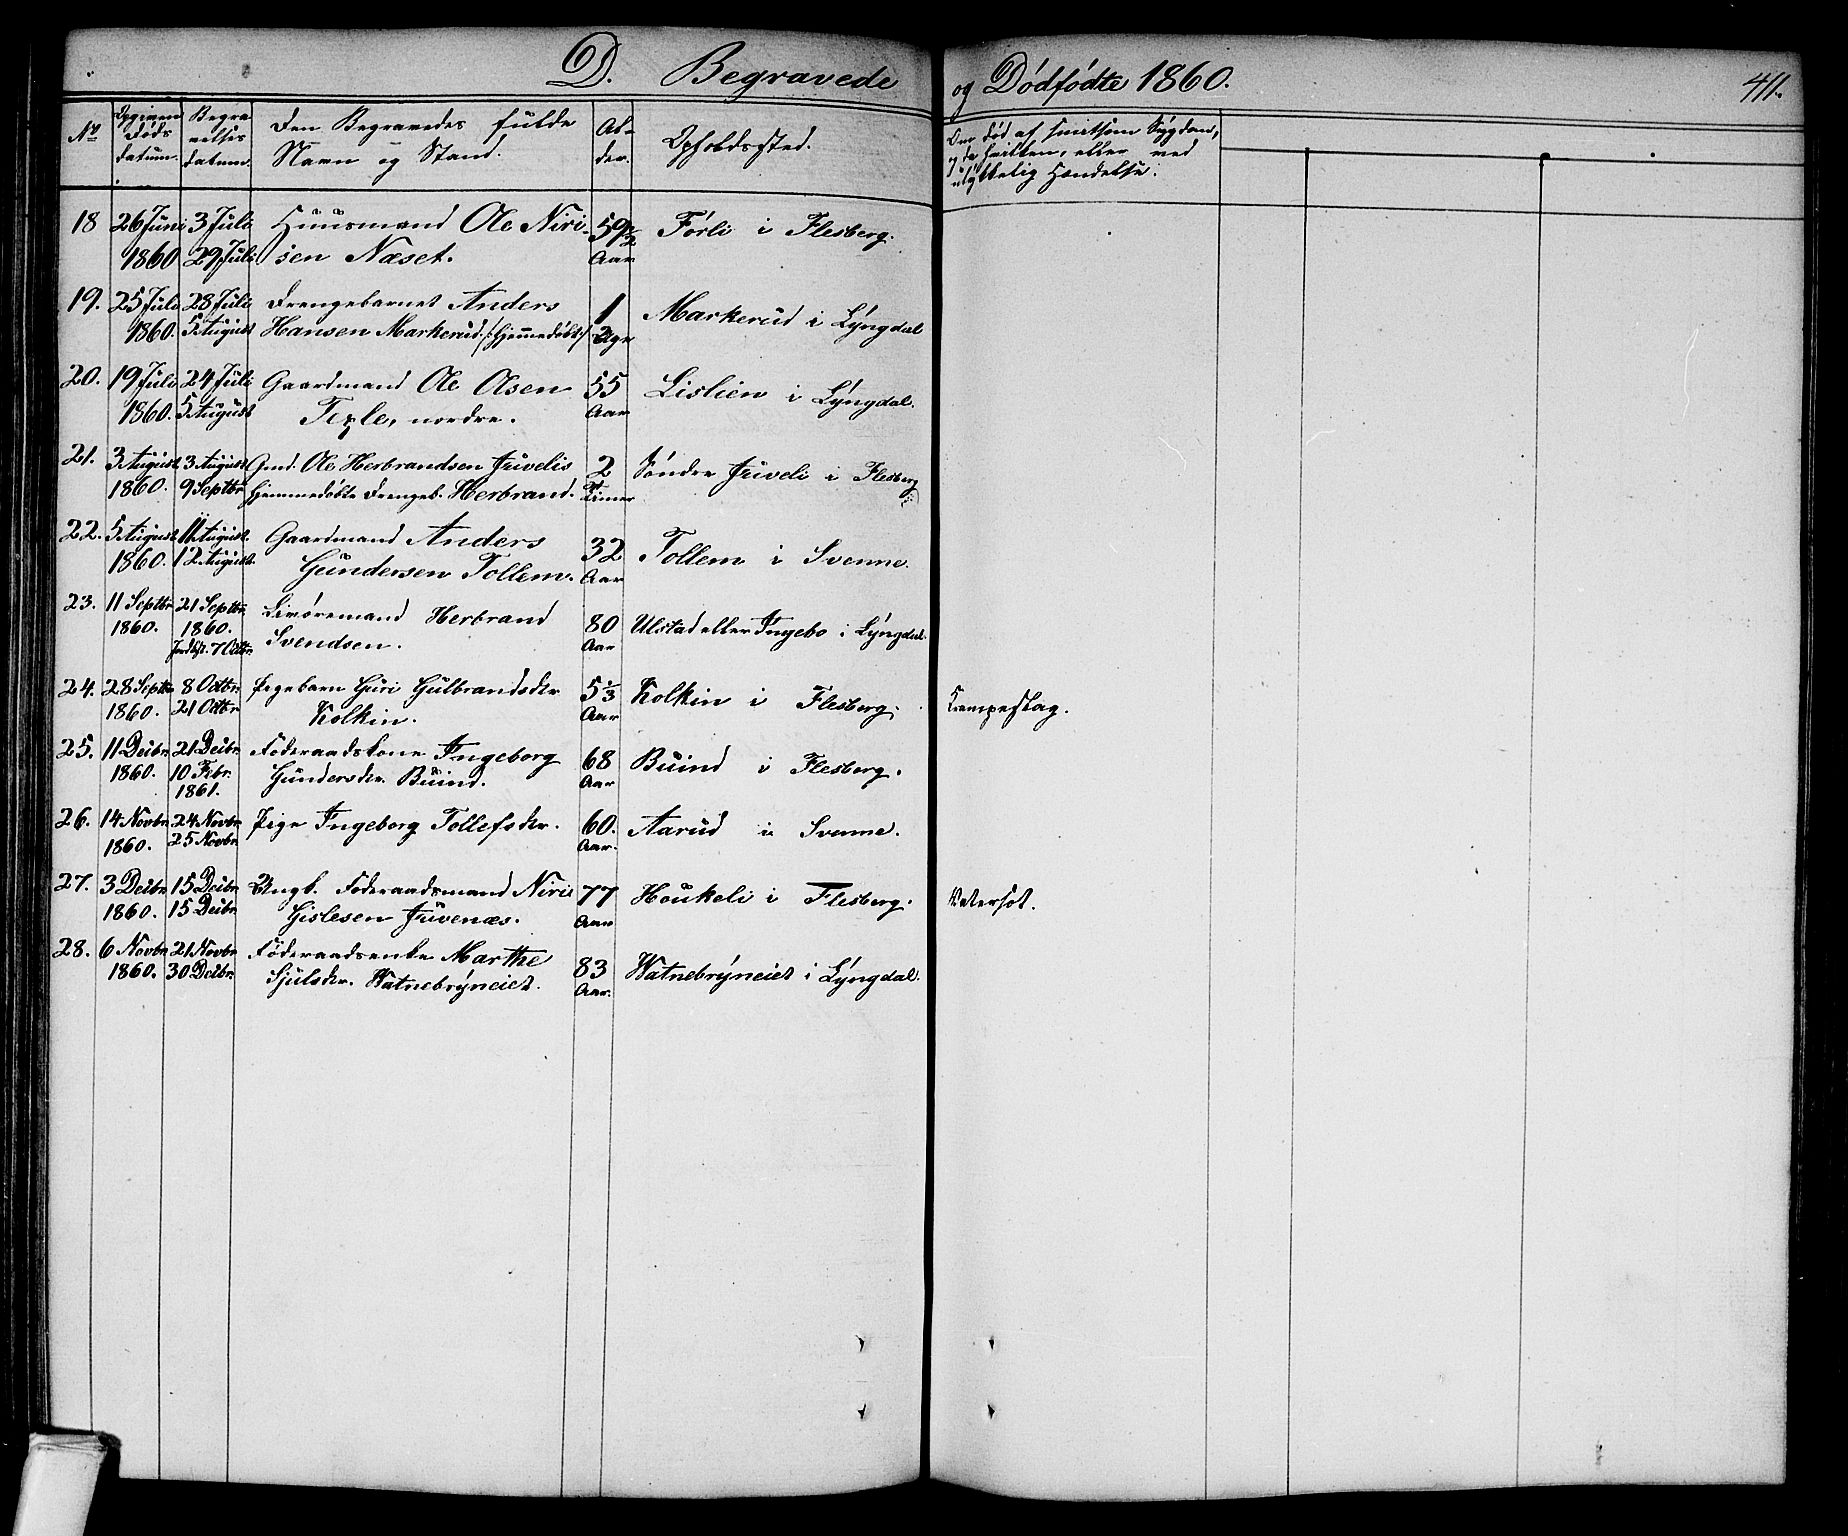 D. Begravede og Dødfødte 1860. 411.
No
Opgiven
Døds
datum.
Begra
velses
datum.
Den Begravedes fulde
Navn og Stand.
Al-
der.
Opholdssted.
Om død af smitsom Sygdom,
og da hvilken, eller ved
ulykkelig Hændelse.
18 26 Juni 3 Juli Huusmand Ole Niri- 59 1/2 Førli i Flesberg.
1860 29 Juli sen Næset. Aar
19. 25 Juli 28 Juli Drengebarnet Anders 1 Markerud i Lyngdal
1860. 5 August Hansen Markerud /:hjemmedøbt:/ Uge
20. 19 Juli 24 Juli Gaardmand Ole Olsen 55 Lislien i Lyngdal.
1860. 5 August Texle, nordre. Aar
21. 3 August 3 August Gmd. Ole Herbrandsen Juvelis 2 Søndre Juveli i Flesberg
1860. 9 Septbr hjemmedøbte Drengeb. Herbrand. Timer
22. 5 August 11 August Gaardmand Anders 32 Tollem i Svenne.
1860. 12 August. Gundersen Tollem. Aar
23. 11 Septbr 21 Septbr Livøremand Herbrand 80 Ulstad eller Ingebo i Lyngdal.
1860. 1860. Svendsen. Aar
7 Octbr.
24. 28 Septbr 8 Octbr Pigebarn Guri Gulbrandsdtr 5 1/3 Kolkin i Flesberg. Krampeslag.
1860. 21 Octbr Kolkin. Aar
25. 11 Decbr. 21 Decbr. Føderaadskone Ingeborg 68 Buind i Flesberg.
1860. 10 Febr. Gundersdtr. Buind. Aar
1861.
26. 14 Novbr. 24 Novbr. Pige Ingeborg Tollefsdtr. 60. Aarud i Svenne.
1860. 25 Novbr. Aar.
27. 3 Decbr. 15 Decbr. Ungk. Føderaadsmand Niri 77 Houkeli i Flesberg. Vatersot.
1860. 15 Decbr. Gislesen Juvenæs. Aar
28. 6 Novbr. 21 Novbr. Føderaadsenke Marthe 83 Watnebryneiet i Lyngdal.
1860. 30 Decbr. Sjulsdtr. Watnebryneiet. Aar.